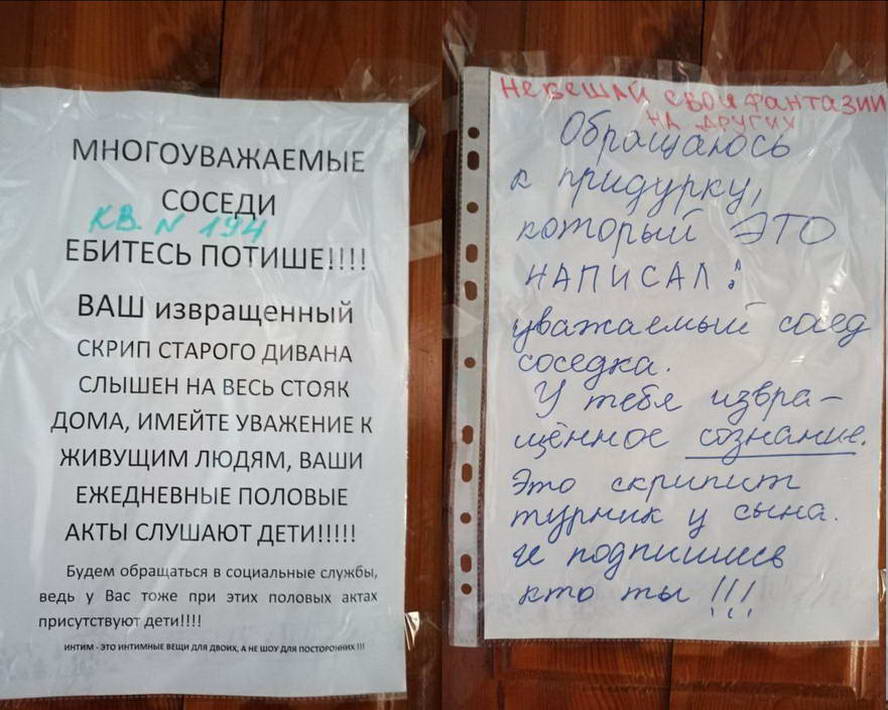 МНОГОУВАЖАЕМЫЕ
СОСЕДИ
КВ. N 194
ЕБИТЕСЬ ПОТИШЕ!!!!
ВАШ извращенный
СКРИП СТАРОГО ДИВАНА
СЛЫШЕН НА ВЕСЬ СТОЯК
ДОМА, ИМЕЙТЕ УВАЖЕНИЕ К
ЖИВУЩИМ ЛЮДЯМ, ВАШИ
ЕЖЕДНЕВНЫЕ ПОЛОВЫЕ
АКТЫ СЛУШАЮТ ДЕТИ!!!!!
Будем обращаться в социальные службы,
ведь у Вас тоже при этих половых актах
присутствуют дети!!!!
ИНТИМ - ЭТО ИНТИМНЫЕ ВЕЩИ ДЛЯ ДВОИХ, А НЕ ШОУ ДЛЯ ПОСТОРОННИХ !!!
НЕ ВЕШАЙ СВОИ ФАНТАЗИИ
НА ДРУГИХ
Обращаюсь
к придурку,
который ЭТО
НАПИСАЛ:
уважаемый сосед
соседка.
У тебя извра-
щённое сознание.
Это скрипит
турник у сына.
и подпишись
кто ты !!!